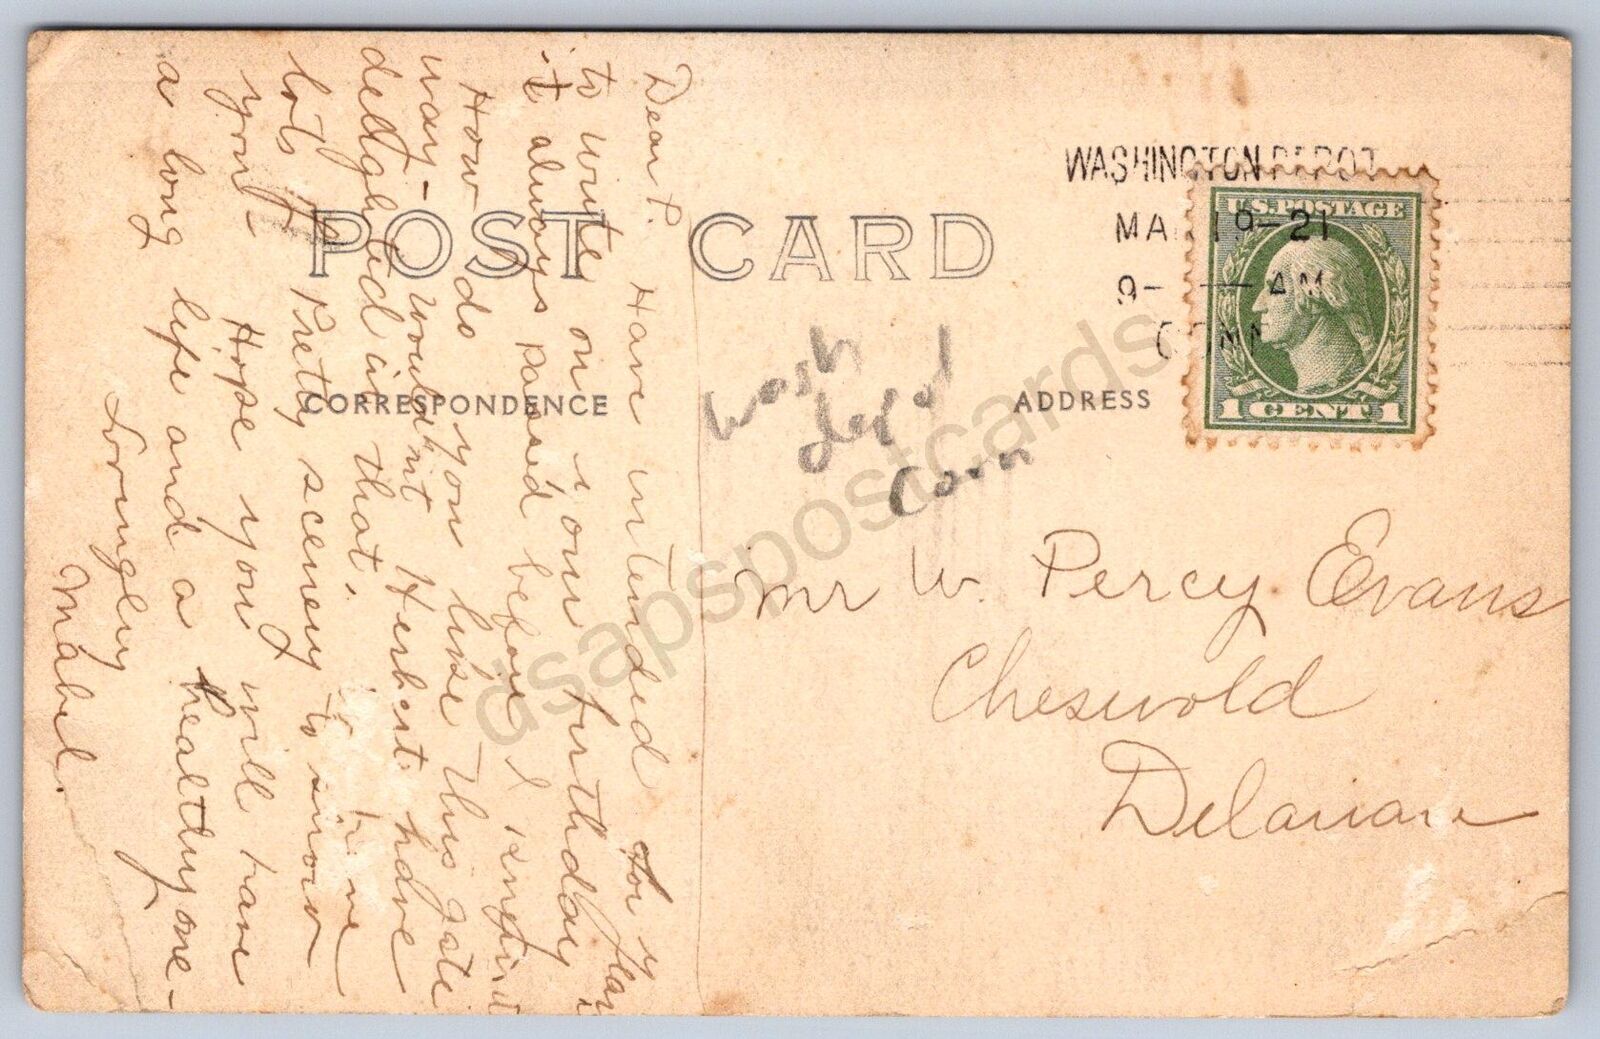 Dear P.
Have intended for y
to write on your birthday
it always passed before I
How do you like this gate
way - Wouldn't Herbert have
delighted in that.
lots of Pretty scenery to show
you - Hope you will have
a long life and a healthy one -
Lovingly
Mabel.
POST CARD
CORRESPONDENCE
ADDRESS
WASHINGTON DEPOT
MA 19-21
9- AM
CONN
U.S. POSTAGE
1 CENT 1
Wash
depot
Conn
Mr W. Percy Evans
Cheswold
Delaware
dsapspostcards